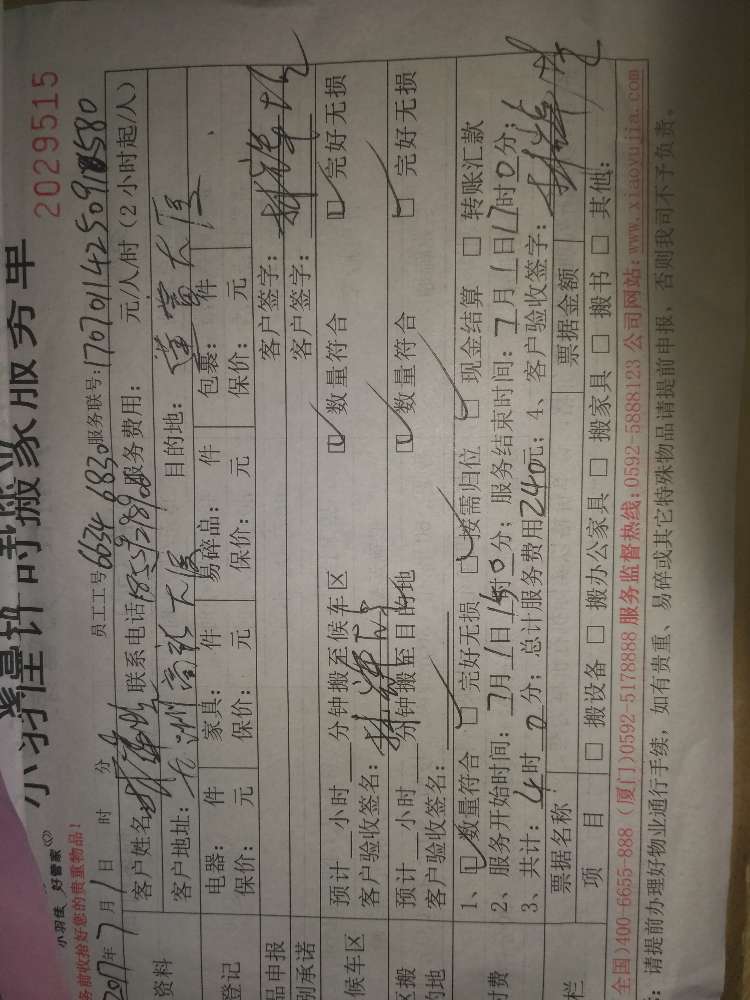 小羽佳 好管家
务前收拾好您的贵重物品！
小羽佳计时搬家服务单
2029515
2017年7月1日 时 分 员工工号 6634 6830 服务联号：
客户姓名 联系电话 服务费用： 元/人/时（2小时起/人）
资料 客户地址： 大厦 目的地： 大厦
电器： 件 家具： 件 易碎品： 件 包裹： 件
登记 保价： 元 保价： 元 保价： 元 保价： 元
品申报 客户签字：
别承诺 客户签字：
预计 小时 分钟搬至候车区 □ 数量符合 □ 完好无损
候车区 客户验收签名：
预计 小时 分钟搬至目的地 □ 数量符合 □ 完好无损
区搬
的地 客户验收签名：
1、□ 数量符合 □ 完好无损 □ 按需归位 □ 现金结算 □ 转账汇款
2、服务开始时间：7月1日 时0分；服务结束时间：7月1日17时0分；
付费 3、共计：4时0分；总计服务费用240元；4、客户验收签字：
票据名称 票据金额
栏 项 目 □ 搬设备 □ 搬办公家具 □ 搬家具 □ 搬书 □ 其他：
全国)400-6655-888 (厦门)0592-5178888 服务监督热线：0592-5888123 公司网站：www.xiaoyujia.com
：请提前办理好物业通行手续，如有贵重、易碎或其它特殊物品请提前申报，否则我司不予负责。